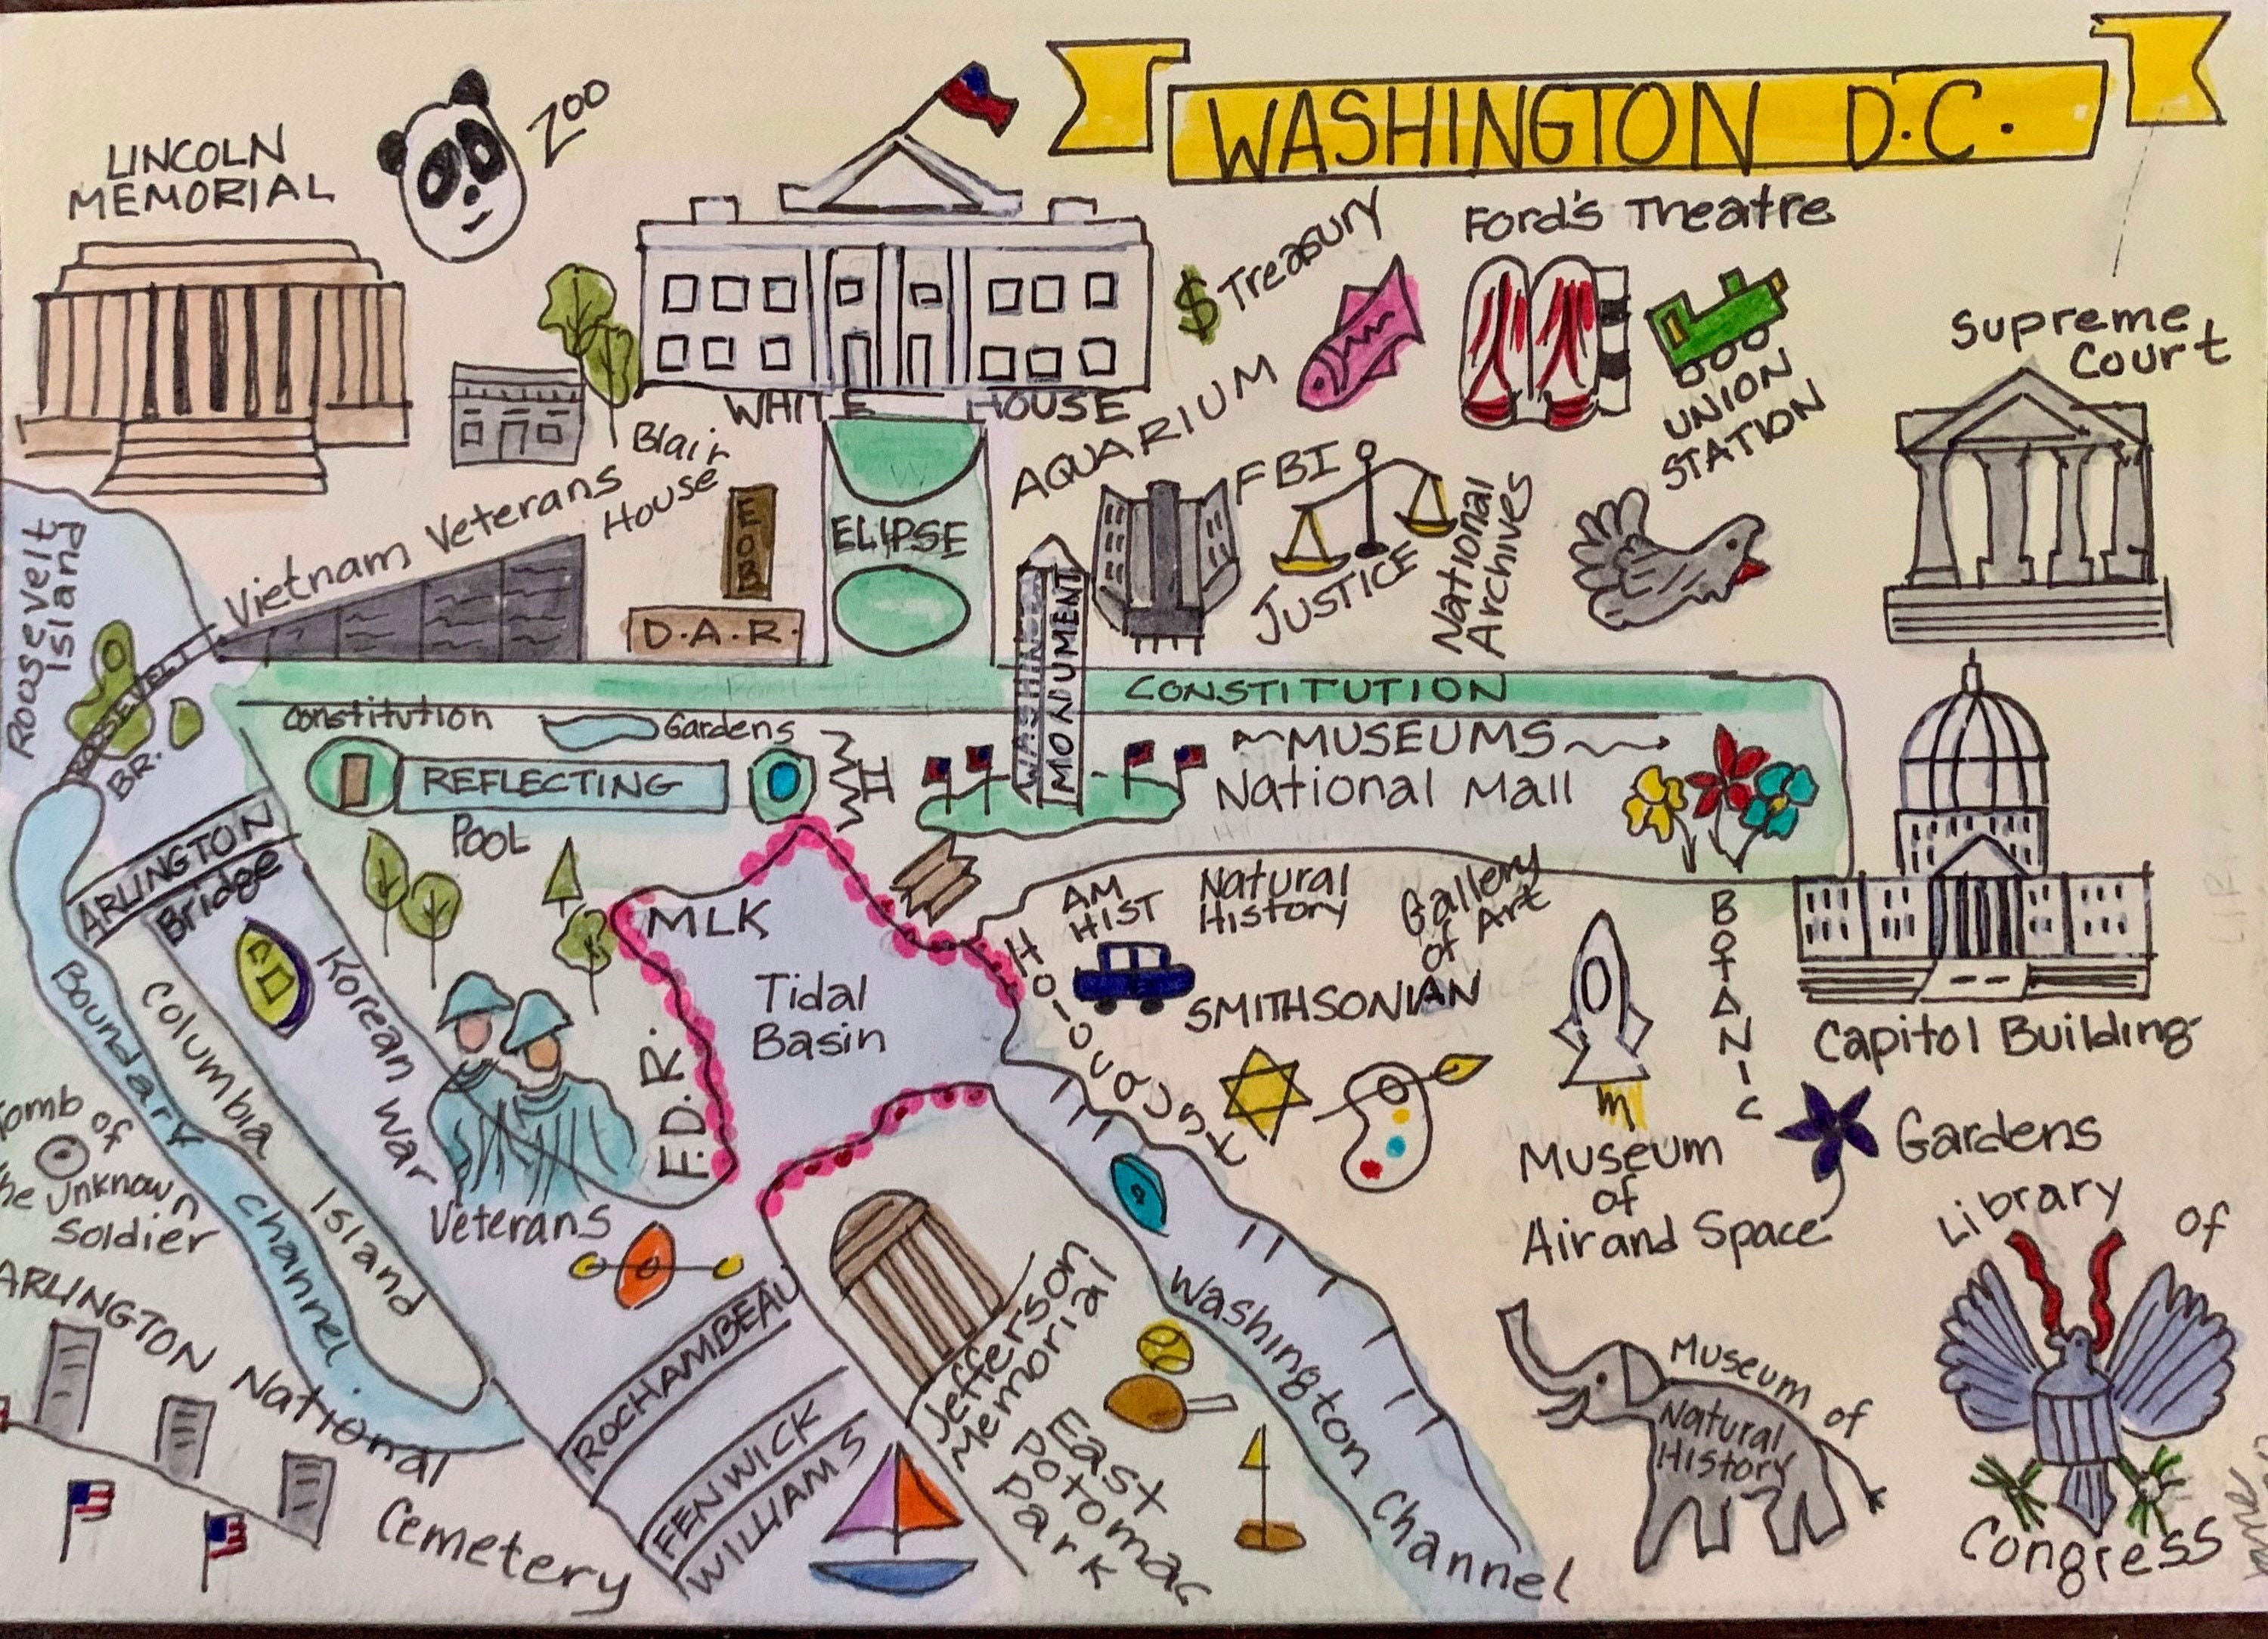 WASHINGTON D.C.
LINCOLN
MEMORIAL
ZOO
WHITE HOUSE
$ Treasury
Ford's Theatre
AQUARIUM
UNION
STATION
Supreme
Court
Blair
House
Vietnam Veterans
EOB
D.A.R.
ELIPSE
FBI
JUSTICE
National
Archives
Roosevelt
Island
ROOSEVELT
BR.
WASHINGTON
MONUMENT
CONSTITUTION
Constitution Gardens
REFLECTING
POOL
MUSEUMS
National Mall
ARLINGTON
Bridge
MLK
Tidal
Basin
F.D.R.
AM
HIST
Natural
History
Gallery
of Art
SMITHSONIAN
HOLOCAUST
BOTANIC
Gardens
Capitol Building
Boundary Channel
Columbia Island
Korean War
Veterans
Tomb of
the Unknown
Soldier
ARLINGTON National
Cemetery
Museum
of
Air and Space
Library of
Congress
ROCHAMBEAU
FENWICK
WILLIAMS
Jefferson
Memorial
East
Potomac
Park
Washington Channel
Museum of
Natural
History